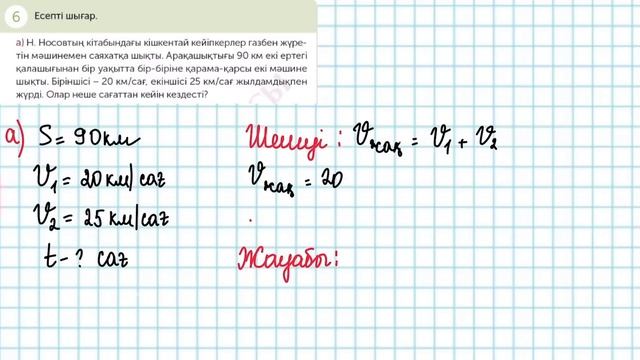 6 Есепті шығар.
а) Н. Носовтың кітабындағы кішкентай кейіпкерлер газбен жүре-
тін машинемен саяхатқа шықты. Арақашықтығы 90 км екі ертегі
қалашығынан бір уақытта бір-біріне қарама-қарсы екі машине
шықты. Біріншісі – 20 км/сағ, екіншісі 25 км/сағ жылдамдықпен
жүрді. Олар неше сағаттан кейін кездесті?
а) S = 90 км
V₁ = 20 км/сағ
V₂ = 25 км/сағ
t - ? сағ
Шешуі: Vжақ = V₁ + V₂
Vжақ = 20
Жауабы: